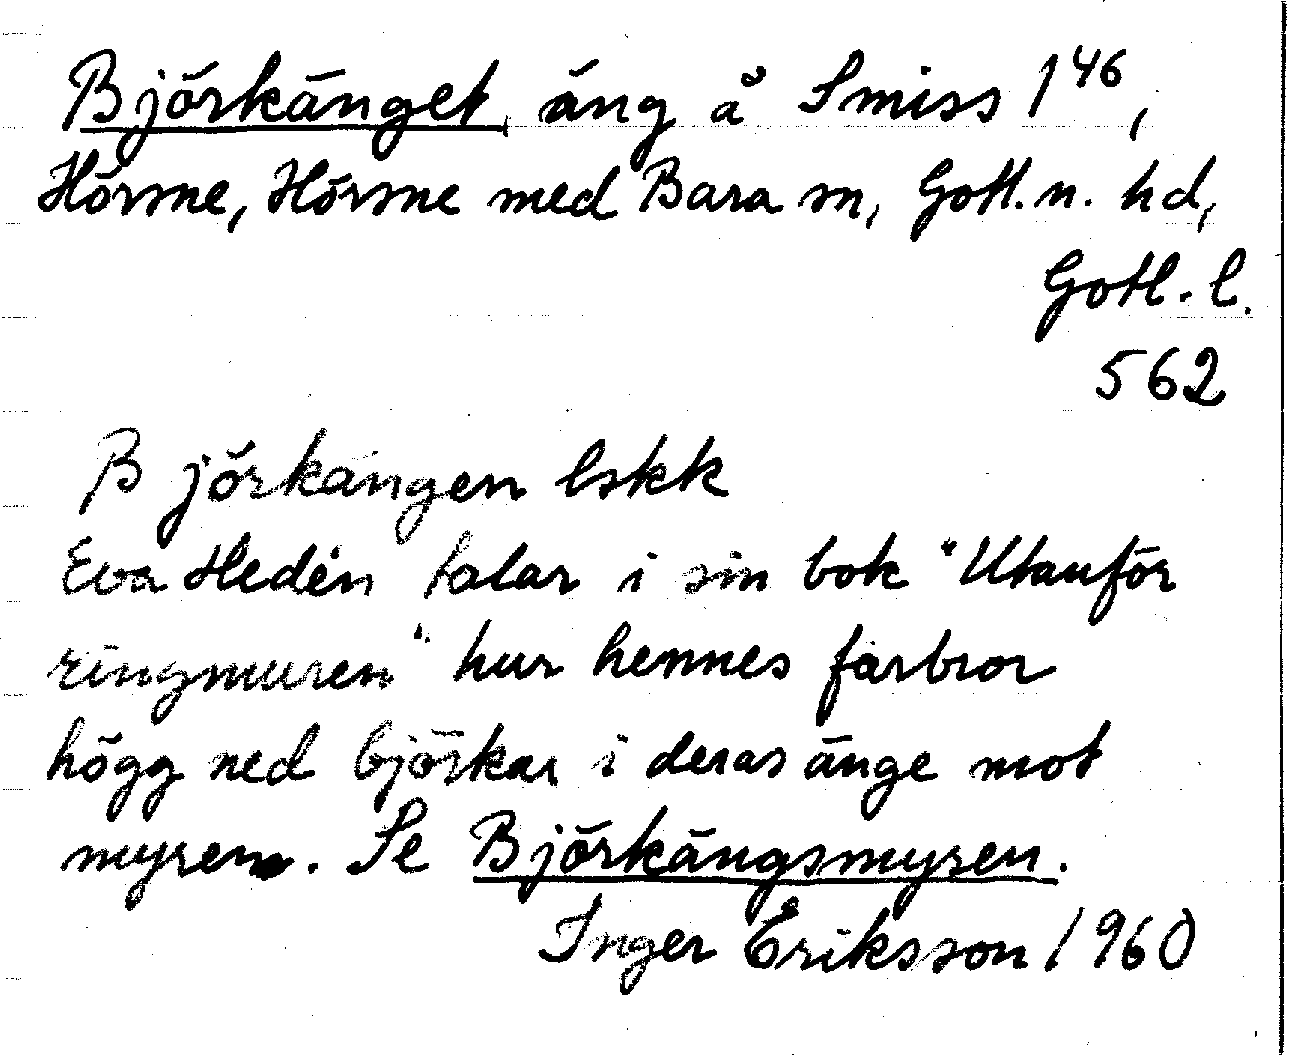 Björkänget, äng å Smiss 1⁴⁶,
Hörsne, Hörsne med Bara sn, Gotl. n. hd,
Gotl. l.
562
Björkängen lskk
Eva Hedén talar i sin bok "Utanför
ringmuren" hur hennes farbror
högg ned björkar i deras änge mot
myren. Se Björkängsmyren.
Inger Eriksson 1960